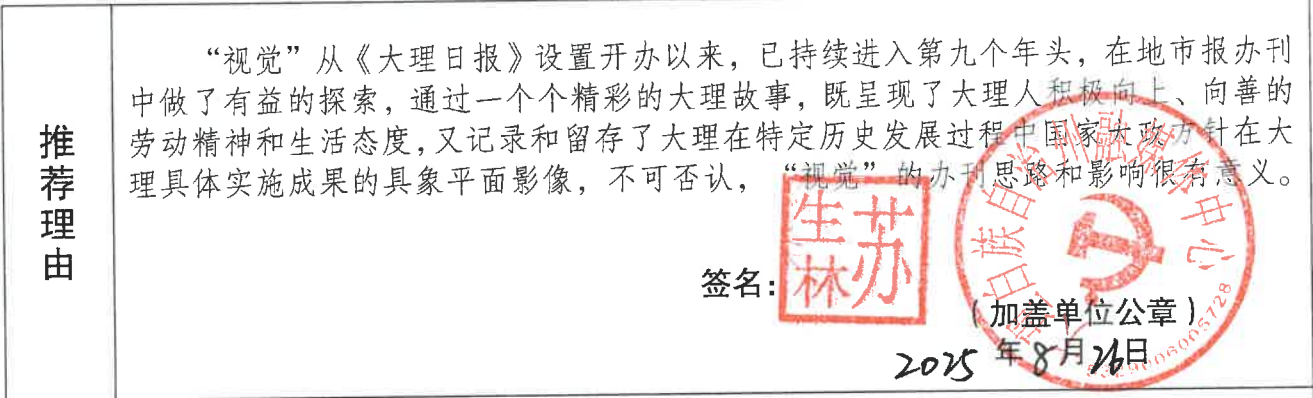 推荐理由
“视觉”从《大理日报》设置开办以来，已持续进入第九个年头，在地市报办刊
中做了有益的探索，通过一个个精彩的大理故事，既呈现了大理人积极向上、向善的
劳动精神和生活态度，又记录和留存了大理在特定历史发展过程中国家大政方针在大
理具体实施成果的具象平面影像，不可否认，“视觉”的办刊思路和影响很有意义。
签名：
苏生林
白族自治州融媒体中心
（加盖单位公章）
2025年8月26日